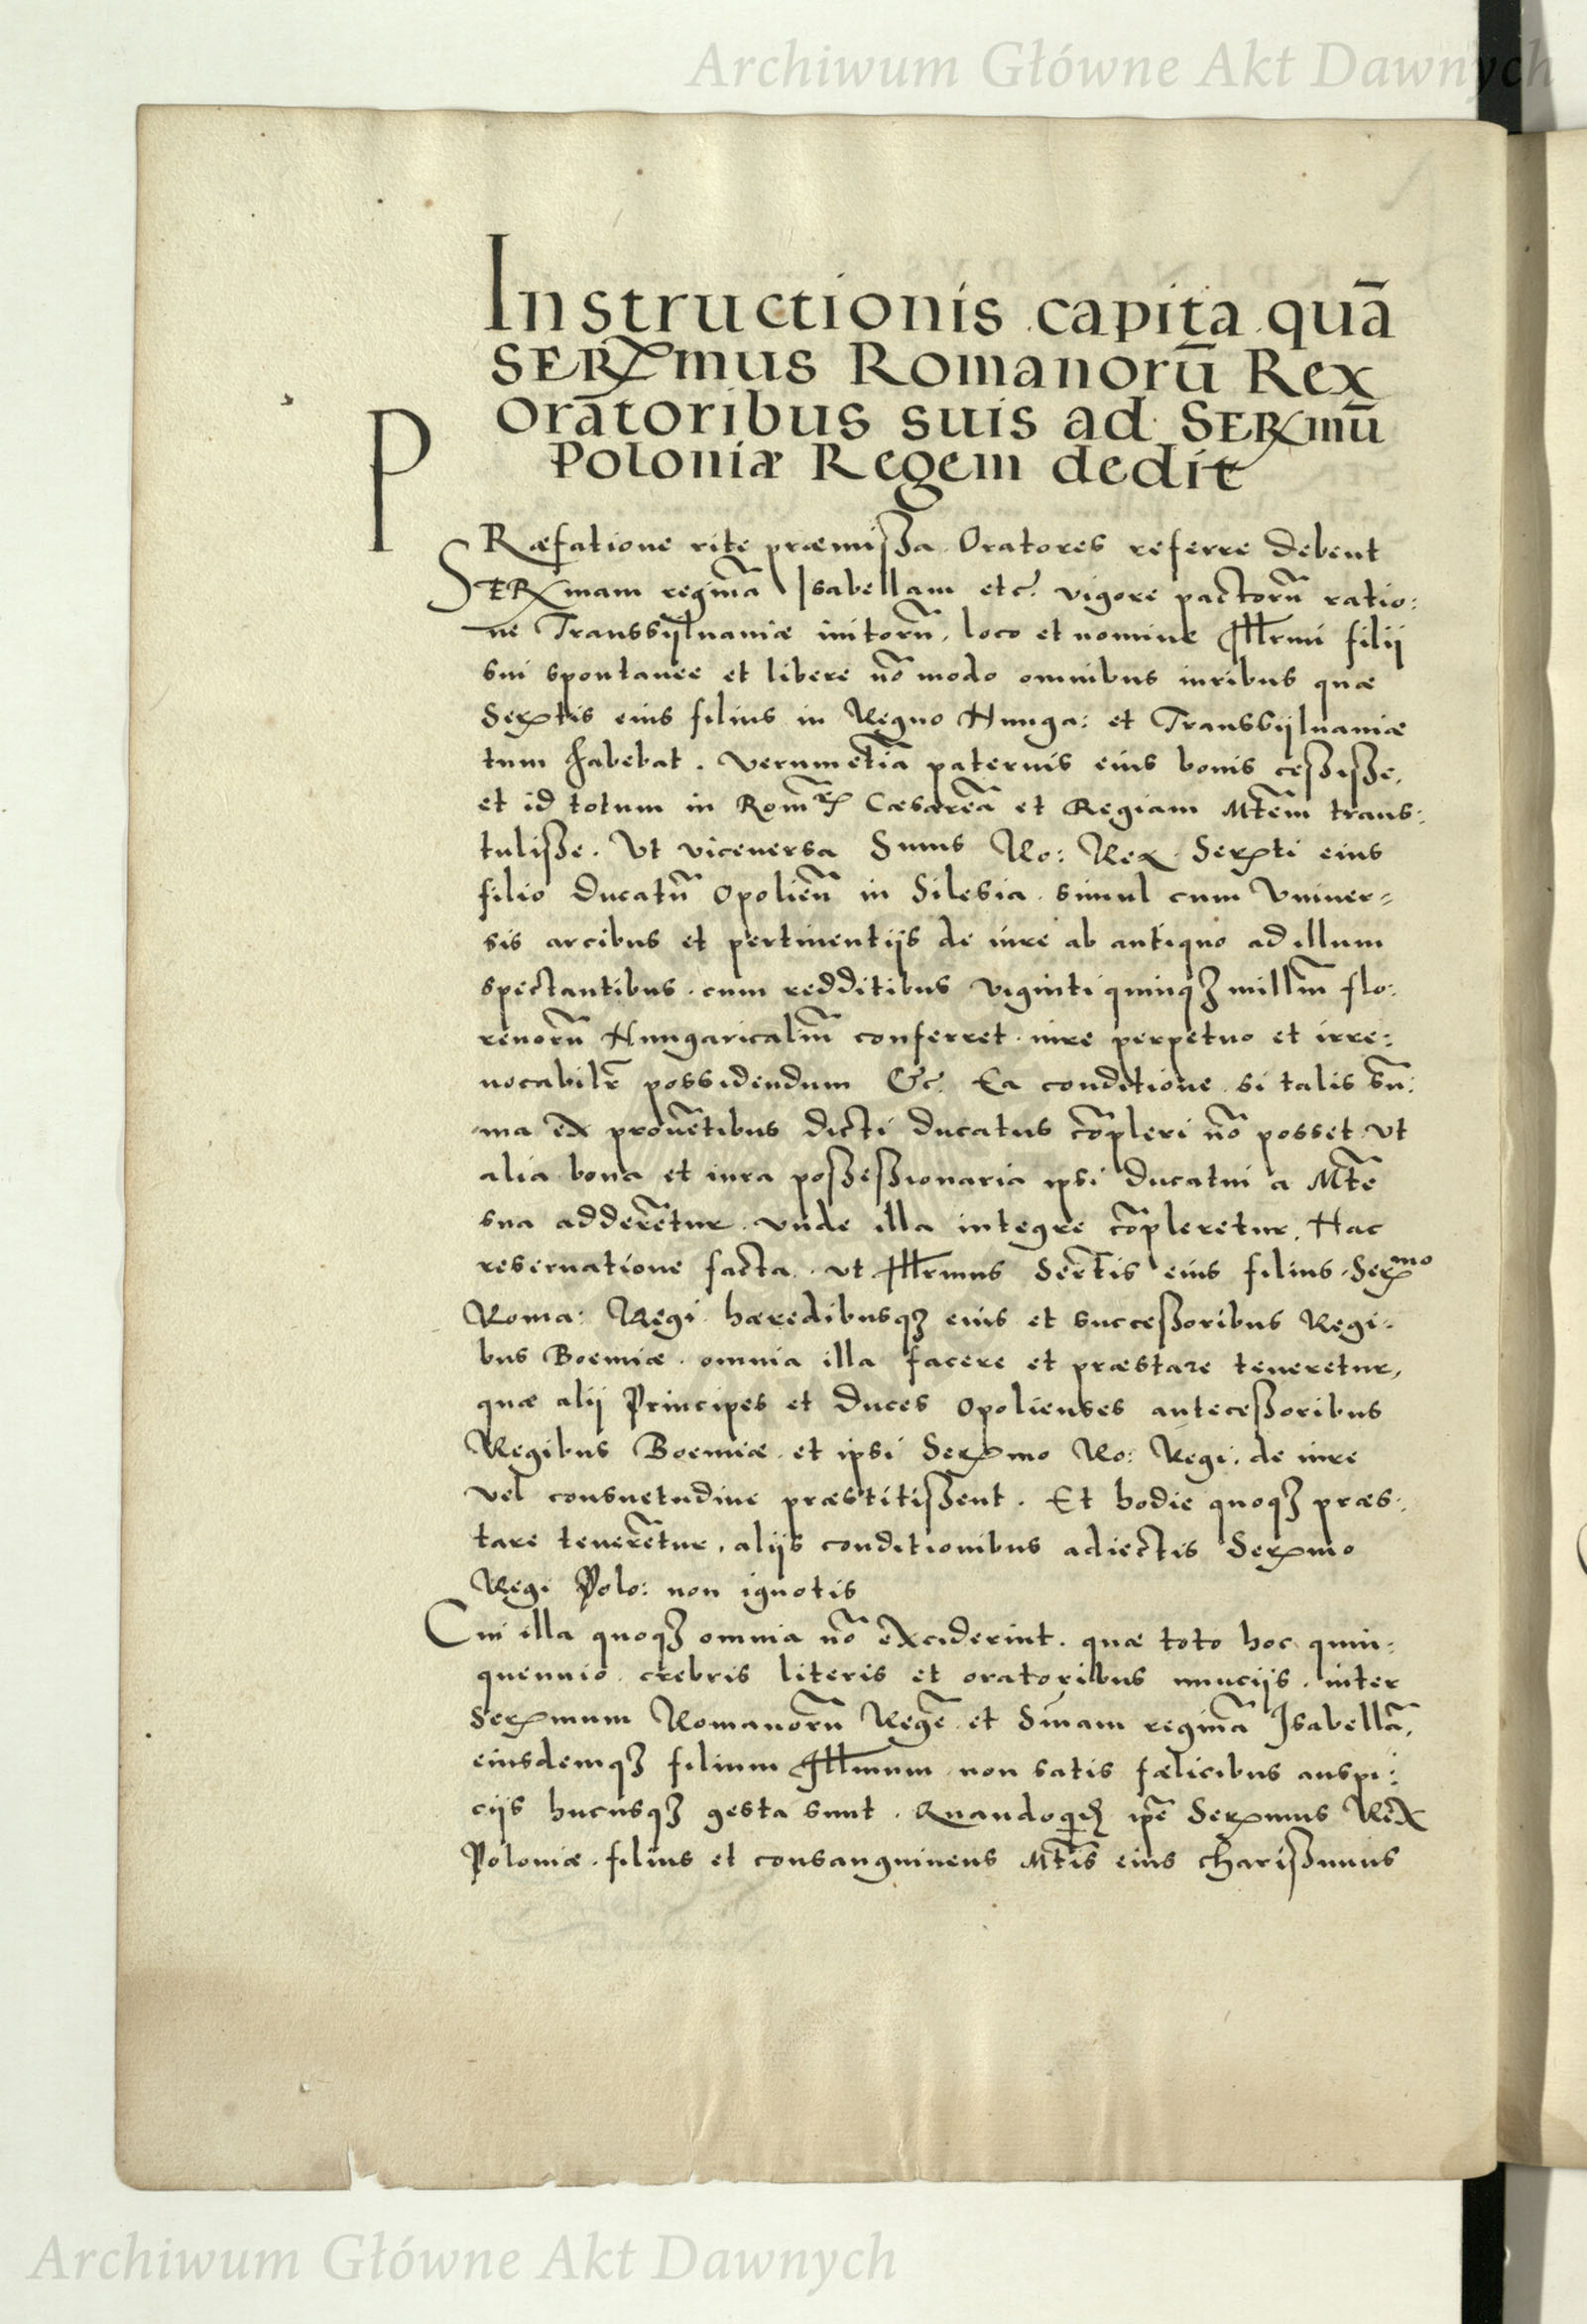 Archiwum Główne Akt Dawnych
Instructionis capita quā
SERmus Romanorū Rex
Orātoribus suis ad SERmū
Poloniæ Regem dedit
PRæfatione rite præmissa Oratores referre debent
SERmam reginā Isabellam etc. vigore pactorū ratio:
ne Transsylvaniæ initorū, loco et nomine Illrmi filij
sui spontanee et libere nō modo omnibus iuribus quæ
Sertis eius filius in Regno Hunga: et Transsylvaniæ
tum habebat. verumetiā paternis eius bonis cessisse,
et id totum in Rom Cæsareā et Regiam Mtēm trans:
tulisse. Ut viceversa Smus Ro: Rex Serti eius
filio Ducatū Opolieñ in Silesia simul cum Univer=
sis arcibus et pertinentijs de iure ab antiquo ad illum
spectantibus cum redditibus viginti quinq3 milliū flo:
renorū Hungaricaliū conferret iure perpetuo et irre:
vocabilr̃ possidendum &c. Ea conditione si talis sū:
ma ex provētibus dicti Ducatus cōpleri nō posset ut
alia bona et iura possessionaria ipsi Ducatui a Mtē
sua adderētur unde illa integre cōpleretur. Hac
reservatione facta ut Illrmus Sertis eius filius Sermo
Roma: Regi hæredibusq3 eius et successoribus Regi:
bus Boemiæ omnia illa facere et præstare teneretur,
quæ alij Principes et Duces Opolienses antecessoribus
Regibus Boemiæ et ipsi Sermo Ro: Regi de iure
vel consuetudine præstitissent. Et hodie quoq3 præs:
tare tenerētur, alijs conditionibus adiectis Sermo
Regi Polo: non ignotis
Cui illa quoq3 omnia nō exciderint quæ toto hoc quin:
quennio crebris literis et oratoribus nunciis inter
Sermum Romanorū Regē et Smam reginā Isabellā,
eiusdemq3 filium Illmum non satis fælicibus auspi:
cijs hucusq3 gesta sunt. Quandoqd ipē Sermus Rex
Poloniæ filius et consanguineus Mtis eius charissimus
Archiwum Główne Akt Dawnych